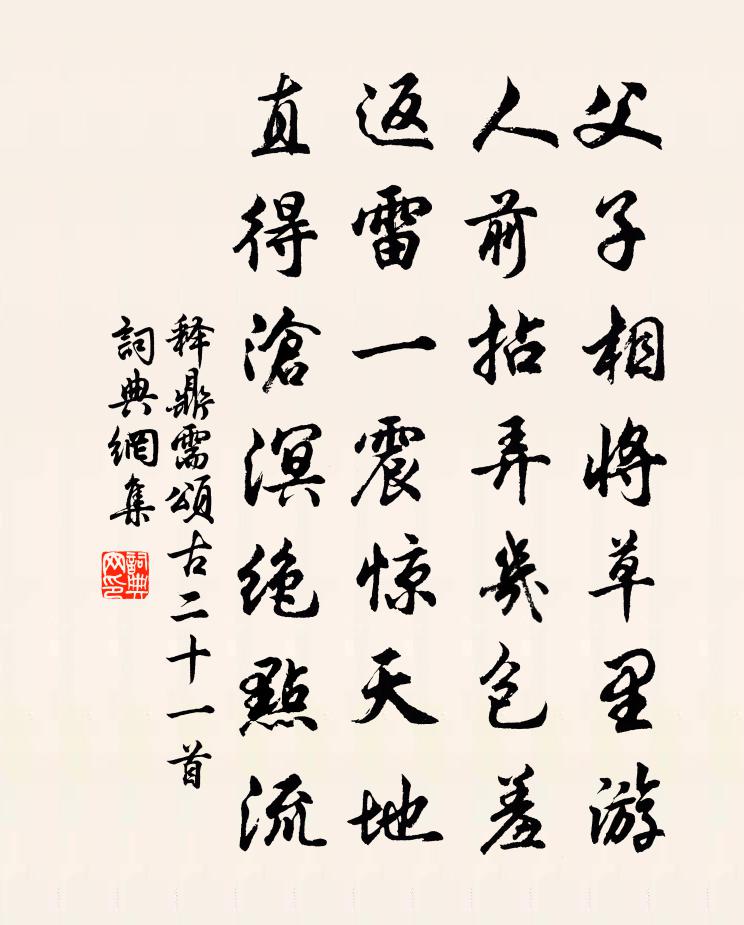 父子相将草里游
人前拈弄几包羞
返雷一震惊天地
直得滄溟绝點流
释鼎需頌古二十一首
詞典網集
詞典
网印